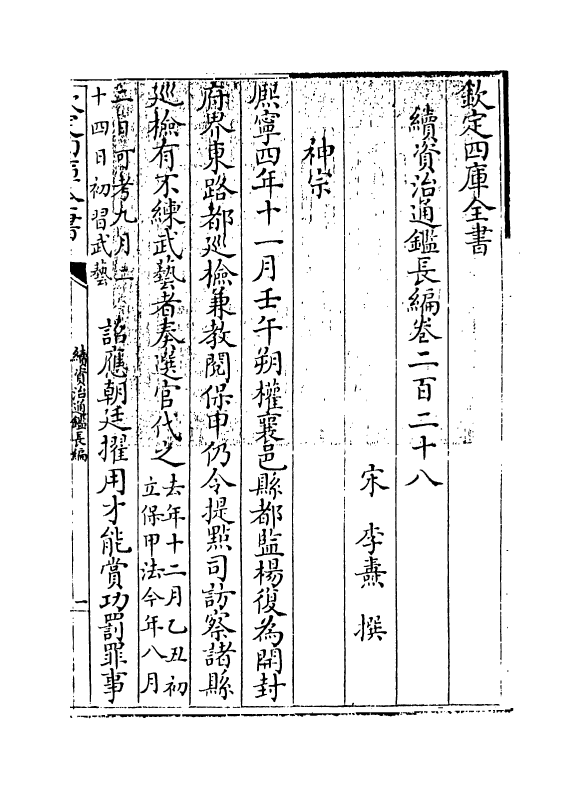 欽定四庫全書
續資治通鑑長編卷二百二十八
宋 李燾 撰
神宗
熈寧四年十一月壬午朔權襄邑縣都監楊復為開封
府界東路都廵檢兼教閱保甲仍令提㸃司訪察諸縣
廵檢有不練武藝者奏選官代之
去年十二月乙丑初
立保甲法今年八月
日可考九月二
十四日初習武藝
詔應朝廷擢用才能賞功罰罪事
續資治通鑑長編
一